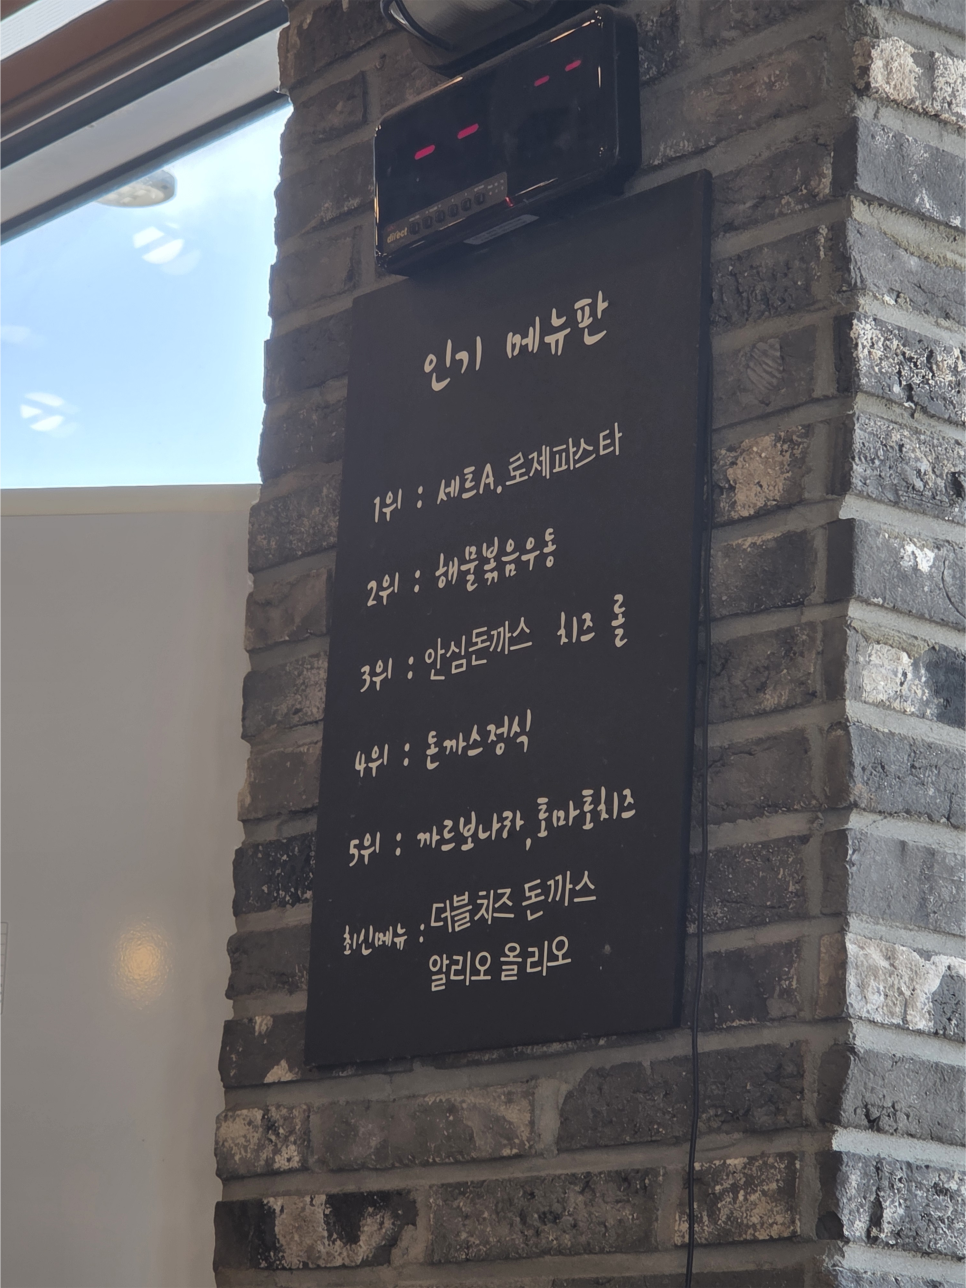 direct
인기 메뉴판
1위 : 세트A.로제파스타
2위 : 해물볶음우동
3위 : 안심돈까스 치즈 롤
4위 : 돈까스정식
5위 : 까르보나라,토마토치즈
최신메뉴 : 더블치즈 돈까스
알리오 올리오